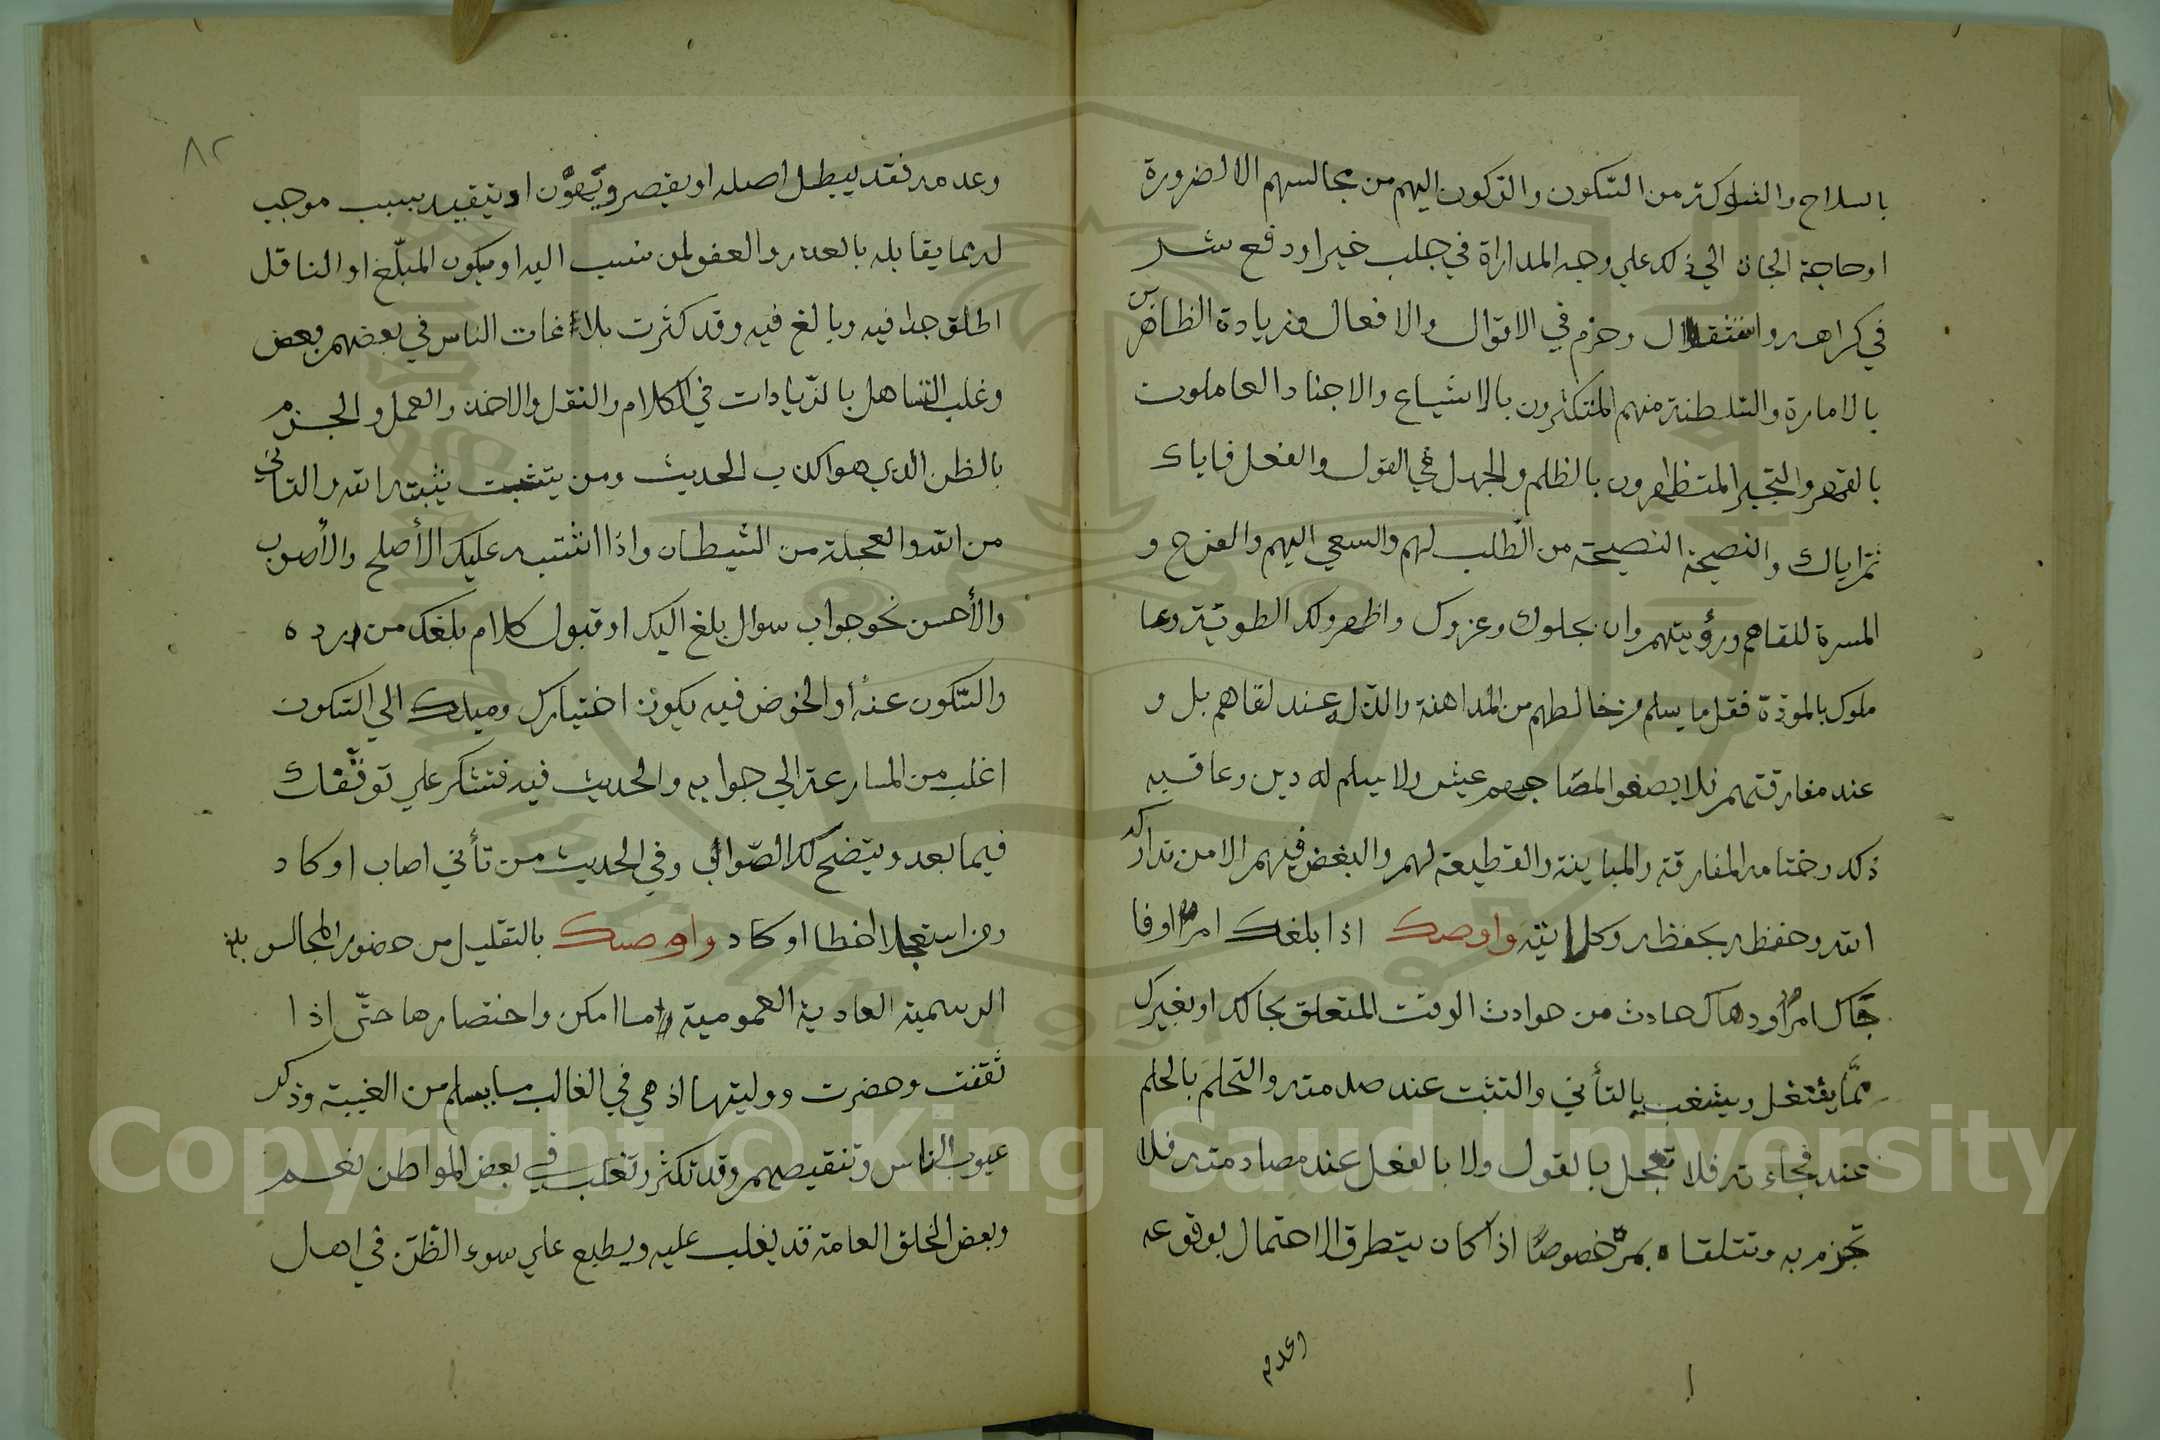 بالسلاح والفتك وكثر من السكون والركون اليهم من مجالسهم الا لضرورة
او حاجة الجات الي ذلك علي وجه المداراة في جلب خير او دفع شر
في كراهه واستثقال وحزم في الاقوال والافعال وزيادة الظاهر
بالامارة والسلطنة منهم المتكثرون بالاشياع والاجناد العاملون
بالقهر والتجبر المتظاهرون بالظلم والجهل في القول والفعل فاياك
ثم اياك والنصيحة النصيحة من الطلب لهم والسعي اليهم والفرح و
المسرة للقاهم ورؤيتهم وان بجلوك وعزوك واظهروا لك الطوية وعا
ملوك بالمودة فقل ما يسلم من خالطهم من المداهنة والذل عند لقاهم بل و
عند مفارقتهم فلا يصفو المصاحبهم عيش ولا يسلم له دين وعاقبه
ذلك وختامه المفارقة والمباينة والقطيعة لهم والبغض فيهم الا من تداركه
الله وحفظه بحفظه وكلايته واوصيك اذا بلغك امر او فا
جاك امر او دهاك حادث من حوادث الوقت المتعلق بحالك او بغيرك
مما يفتعل ويشغب بالتأني والتثبت عند صدمته والتحلم بالحلم
عند فجاءته فلا تعجل بالقول ولا بالفعل عند مصادمته فلا
تجزم به وتتلقاه بمرة خصوصًا اذا كان يتطرق الاحتمال بوقوعه
وعدم
٨٢
وعدمه فقد يبطل اصله او يقصر ويهون او يتقيد بسبب موجب
له بما يقابله بالعذر والعفو لمن نسب اليه او يكون المبلّغ او الناقل
اطلق جدا فيه وبالغ فيه وقد كثرت بلاغات الناس في بعضهم بعض
وغلب التساهل بالزيادات في الكلام والنقل والاخذ والعمل والجزم
بالظن الذي هو اكذب الحديث ومن يتثبت يثبته الله والتاني
من الله والعجلة من الشيطان واذا اشتبه عليك الأصلح والأصوب
والأحسن نحو جواب سوال بلغ اليك او قبول كلام بلغك من رده
والسكون عنه أو الخوض فيه يكون اختيارك وميلك الي السكون
اغلب من المسارعة الي جوابه والحديث فيه فتشكر علي توقفك
فيما بعد ويتضح لك الصواب وفي الحديث من تأني اصاب او كاد
ومن استعجل اخطا او كاد واوصيك بالتقليل من حضور المجالس بلغ
الرسمية العادية العمومية ما امكن واختصارها حتّي اذا
ثقفت وحضرت ووليتها اذ هي في الغالب ما يسلم من الغيبة وذكر
عيوب الناس وتنقيصهم وقد تكثر وتغلب في بعض المواطن نعم
وبعض الخلق العامة قد يغلب عليه ويطبع علي سوء الظن في اهل